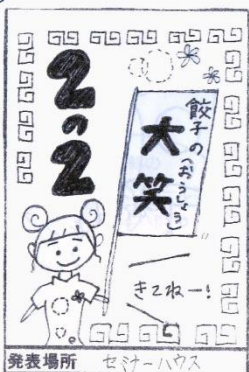 2の2
餃子の
大笑
(おうしょう)
きてねー!
発表場所 セミナーハウス